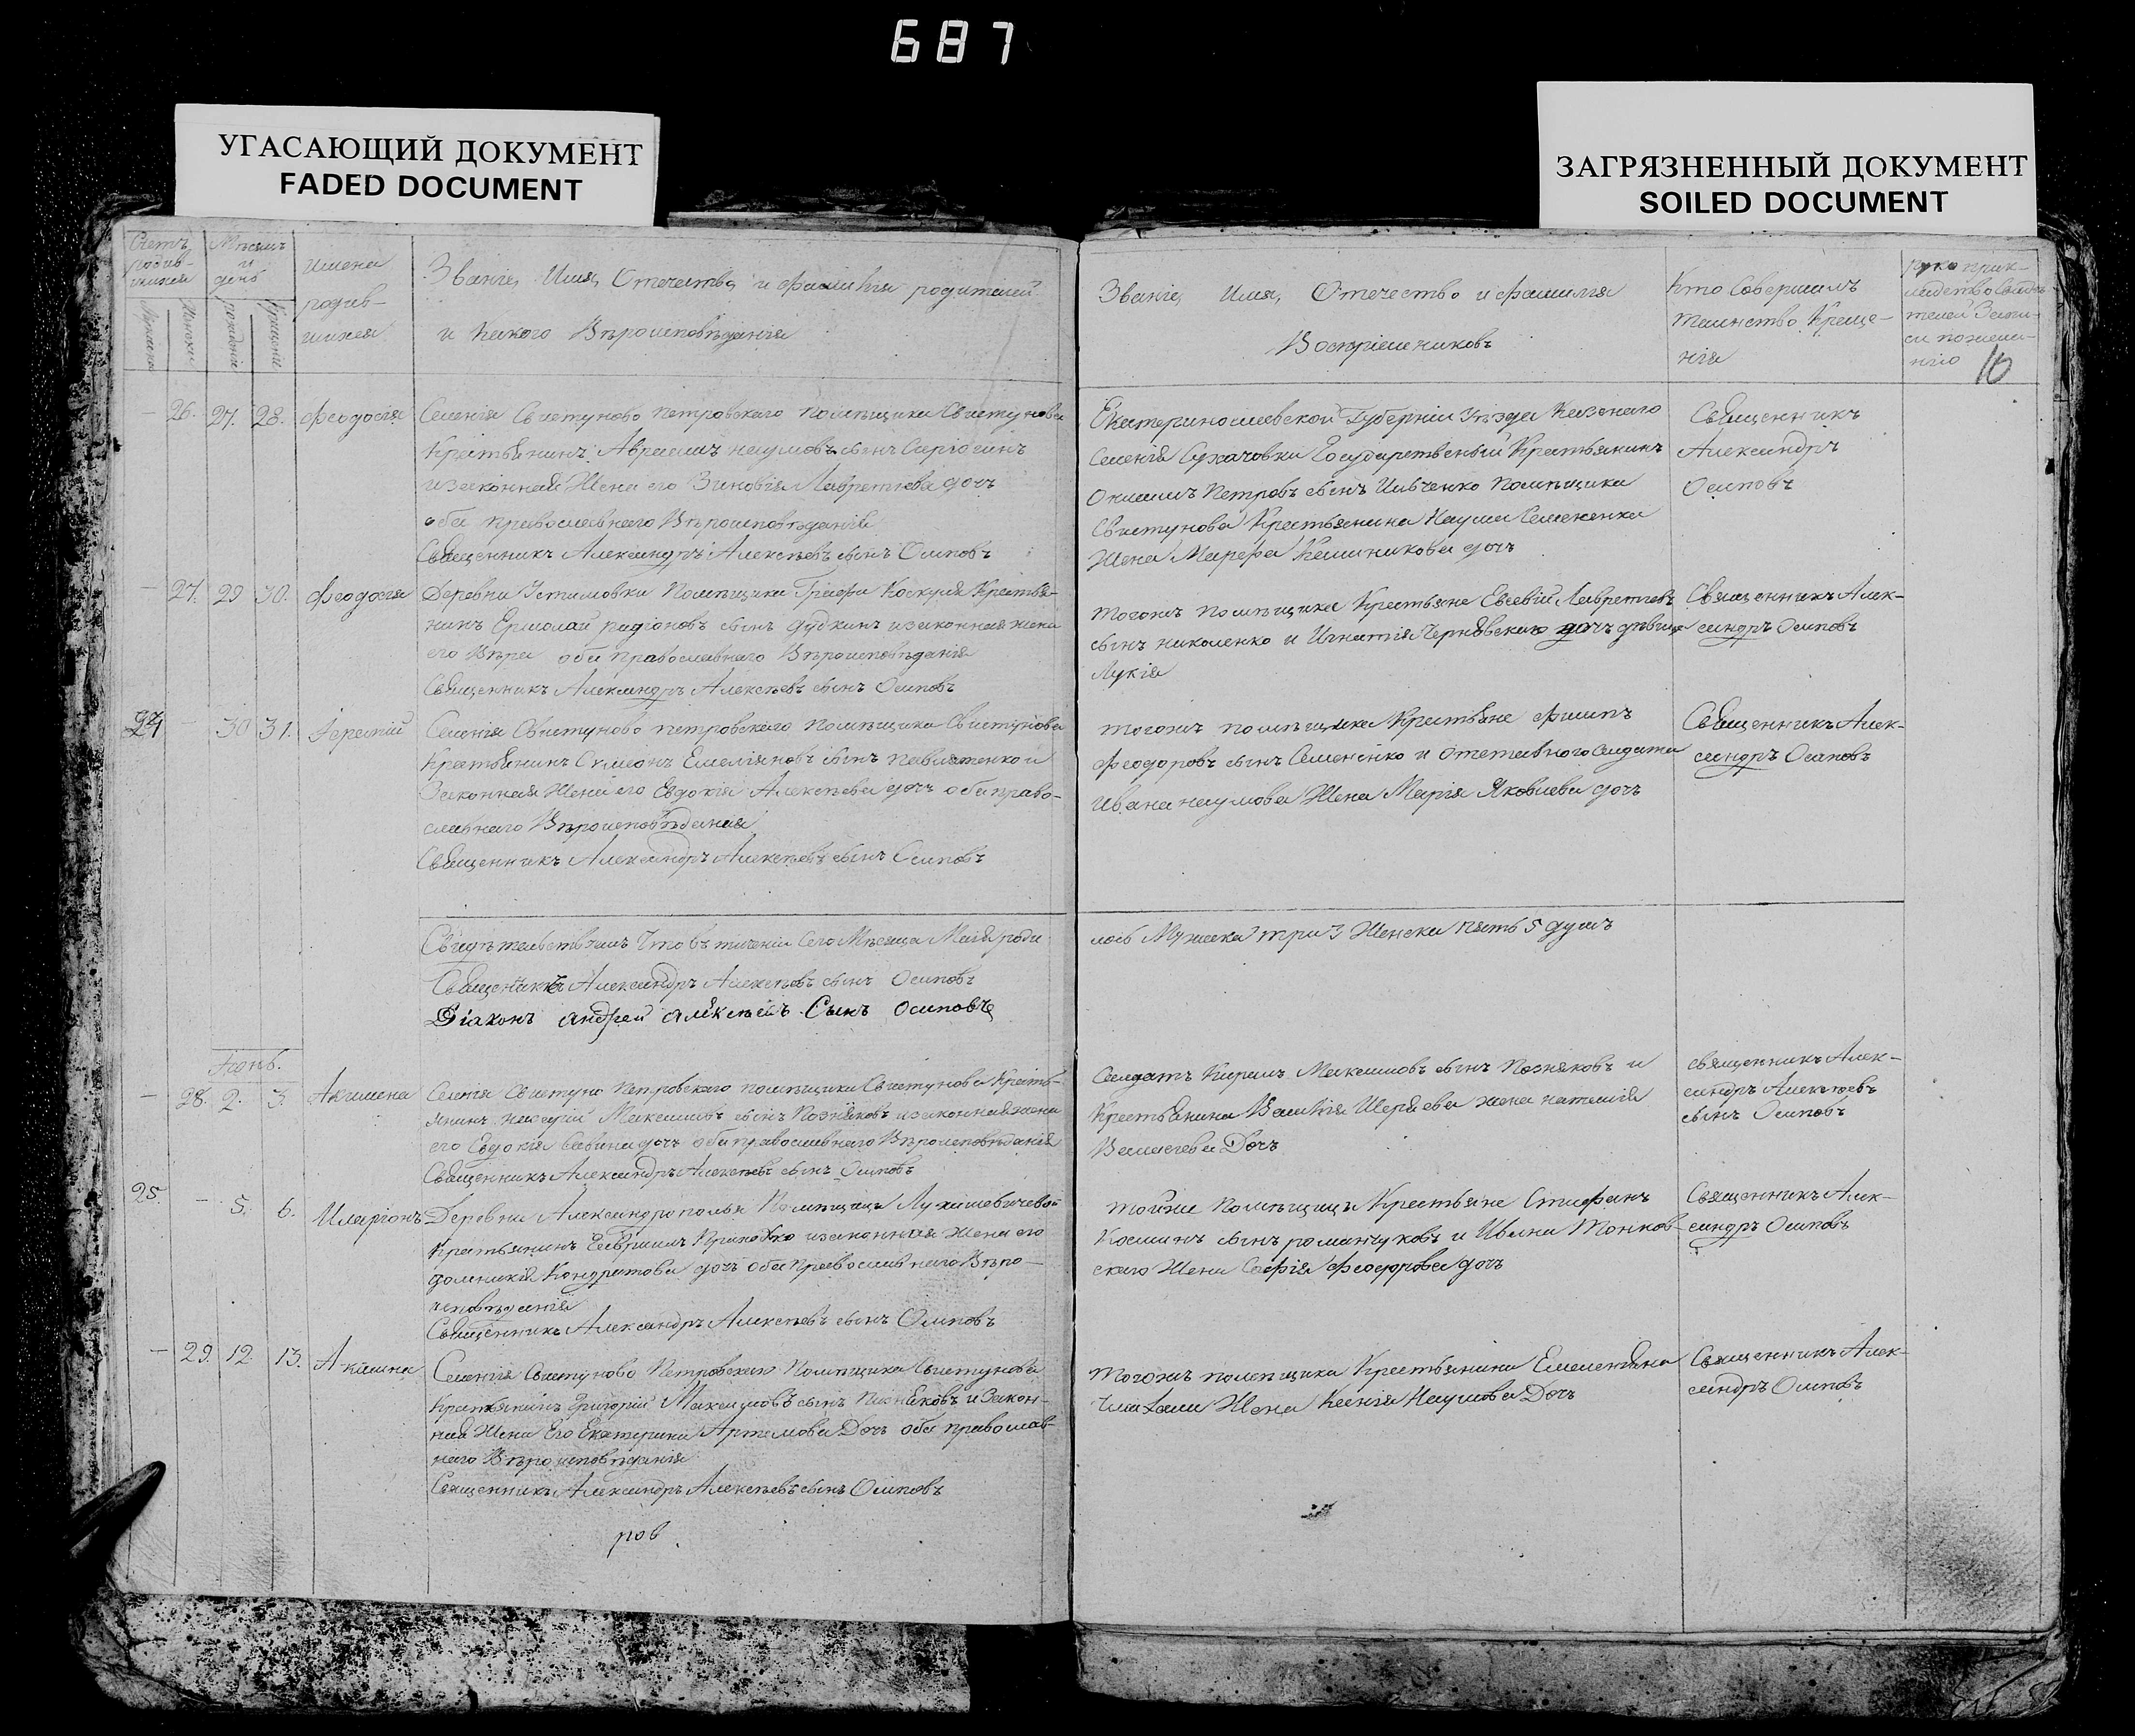 687
УГАСАЮЩИЙ ДОКУМЕНТ
FADED DOCUMENT
ЗАГРЯЗНЕННЫЙ ДОКУМЕНТ
SOILED DOCUMENT
Счетъ родив-шихся
Мужска
Женски
Мѣсяцъ и день
рожденія
крещенія
имена родив-шихся
Званіе, Имя, Отечество, и Фамилія родителей
и какого Вѣроисповѣданія
Званіе, Имя, Отечество и фамилія
Воспріемниковъ
Кто Совершалъ
таинство Креще-
нія
рукоприк-
ладство Свидѣ-
телей Запи-
си пожела-
нію
10
— 26. 27. 28. Феодосія
Селенія Свистуново петровскаго помѣщика Свистунова
Крестьянинъ Авраамъ наумовъ сынъ
и законная Жена его Зиновія Лаврентіева дочь
оба православнаго Вѣроисповѣданія
Священникъ Александръ Алексѣевъ сынъ Осиповъ
Екатеринославской Губерніи Уѣзда Казеннаго
Селенія Сухачовки Государственный Крестьянинъ
Петровъ сынъ Ивченко помѣщика
Свистунова Крестьянина Наума
Жена Марфа дочь
Священникъ
Александръ
Осиповъ
— 27. 29 30. Феодосія
Деревни Устимовки Помѣщика Графа Крестья-
нинъ Ермолай родіоновъ сынъ Дудкинъ и законная жена
его Вѣра оба православнаго Вѣроисповѣданія
Священникъ Александръ Алексѣевъ сынъ Осиповъ
тогожъ помѣщика Крестьяне Евсевій Лаврентіевъ
сынъ николенко и Игнатія Чернявскаго дочь дѣвица
Лукія
Священникъ Алек-
сандръ Осиповъ
24 — 30 31. Іеремій
Селенія Свистуново петровскаго помѣщика Свистунова
Крестьянинъ Симеонъ Емеліяновъ сынъ и
Законная Жена его Евдокія Алексѣева дочь оба право-
славнаго Вѣроисповѣданія
Священникъ Александръ Алексѣевъ сынъ Осиповъ
тогожъ помѣщика Крестьяне Филипъ
Феодоровъ сынъ Семененко и отставного Солдата
Ивана наумова Жена Марія Яковлева дочь
Священникъ Алек-
сандръ Осиповъ
Свидѣтельствуемъ Что въ теченіи Сего Мѣсяца Маія роди
лось Мужска три 3 Женска пять 5 душъ
Священникъ Александръ Алексѣевъ сынъ Осиповъ
Діаконъ андрей алексѣевъ Сынъ осиповъ
Іюнь.
— 28. 2. 3. Акилина
Петровскаго помѣщика Свистунова Кресть-
янинъ Максимовъ сынъ Позняковъ и законная жена
его Евдокія Саввина дочь оба православнаго Вѣроисповѣданія
Священникъ Александръ Алексѣевъ сынъ Осиповъ
Солдатъ Максимовъ сынъ Позняковъ и
Крестьянина Василія жена наталія
дочь
священникъ Алек-
сандръ Алексѣевъ
сынъ Осиповъ
25. — 5. 6. Иларіонъ
Деревни Александрополья Помѣщицы Лукашевичевой
Крестьянинъ Гавріилъ Приходко и законная Жена его
Домникія Кондратова дочь оба православнаго Вѣро-
исповѣданія
Священникъ Александръ Алексѣевъ сынъ Осиповъ
тойже помѣщицы Крестьяне Стефанъ
Косминъ сынъ романчуковъ и Ивана Тонков-
скаго Жена Софія Феодорова дочь
Священникъ Алек-
сандръ Осиповъ
— 29. 12. 13. Акилина
Селенія Свистуново Петровскаго Помѣщика Свистунова
Крестьянинъ Григорій Максимовъ сынъ Позняковъ и Закон-
ная Жена Его Екатерина Артемова Дочь оба православ-
наго Вѣроисповѣданія
Священникъ Александръ Алексѣевъ сынъ Осиповъ
тогожъ помѣщика Крестьянина Емельяна
Жена Ксенія Наумова Дочь
Священникъ Алек-
сандръ Осиповъ
ров